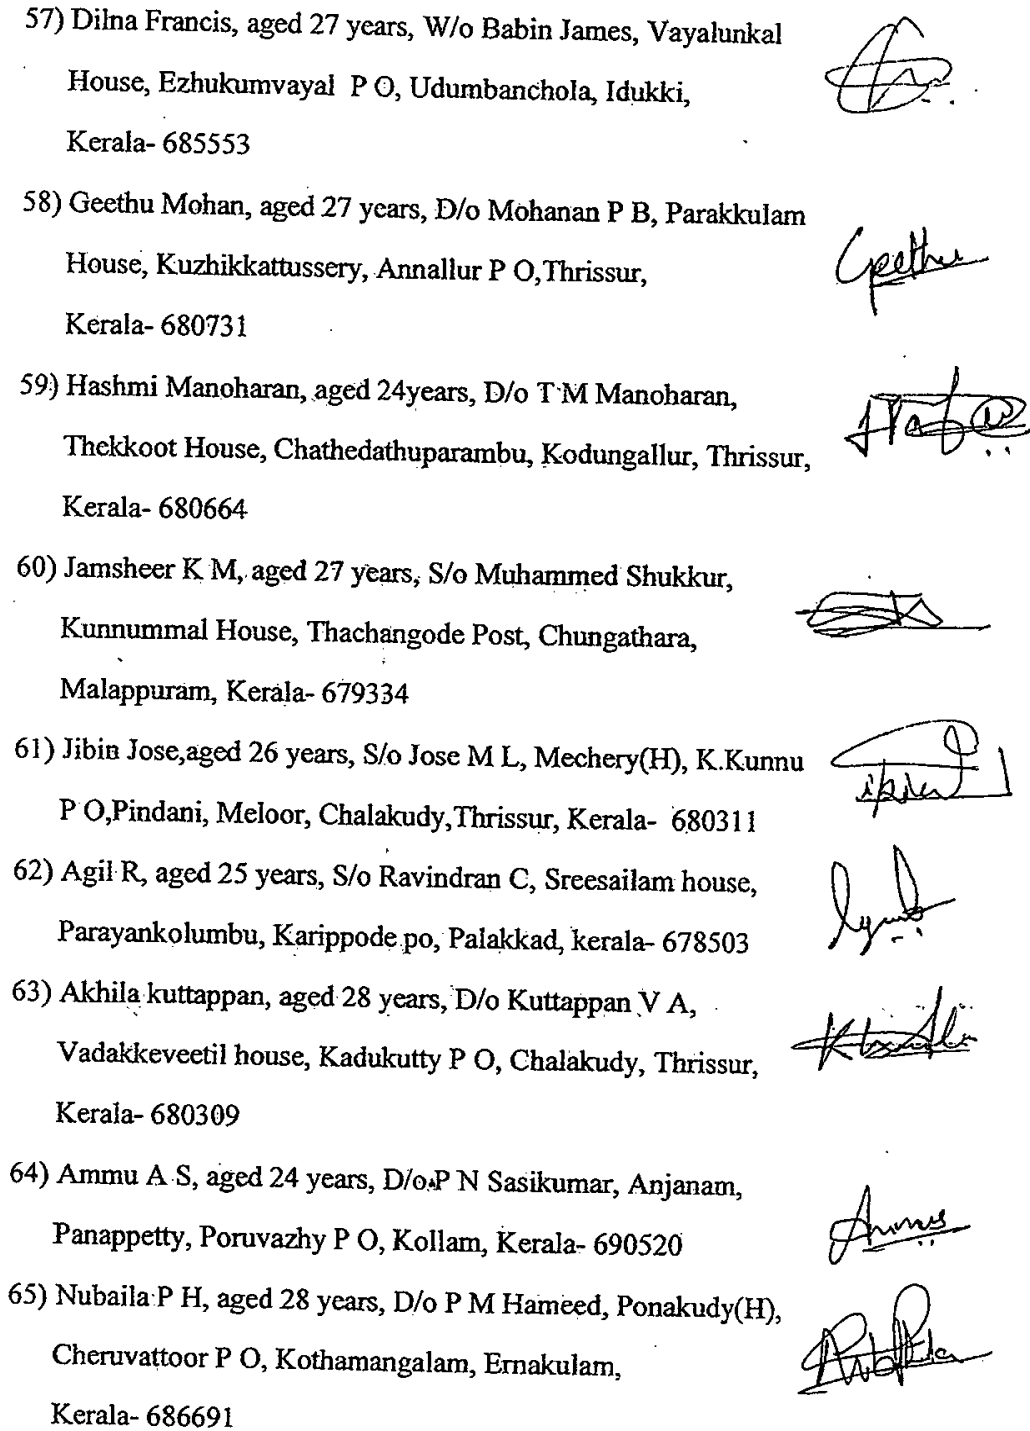 57) Dilna Francis, aged 27 years, W/o Babin James, Vayalunkal
House, Ezhukumvayal P O, Udumbanchola, Idukki,
Kerala- 685553
58) Geethu Mohan, aged 27 years, D/o Mohanan P B, Parakkulam
House, Kuzhikkattussery, Annallur P O,Thrissur,
Kerala- 680731
Geethu
59) Hashmi Manoharan, aged 24years, D/o T M Manoharan,
Thekkoot House, Chathedathuparambu, Kodungallur, Thrissur,
Kerala- 680664
60) Jamsheer K M, aged 27 years, S/o Muhammed Shukkur,
Kunnummal House, Thachangode Post, Chungathara,
Malappuram, Kerala- 679334
61) Jibin Jose,aged 26 years, S/o Jose M L, Mechery(H), K.Kunnu
P O,Pindani, Meloor, Chalakudy,Thrissur, Kerala- 680311
62) Agil R, aged 25 years, S/o Ravindran C, Sreesailam house,
Parayankolumbu, Karippode po, Palakkad, kerala- 678503
63) Akhila kuttappan, aged 28 years, D/o Kuttappan V A,
Vadakkeveetil house, Kadukutty P O, Chalakudy, Thrissur,
Kerala- 680309
64) Ammu A S, aged 24 years, D/o P N Sasikumar, Anjanam,
Panappetty, Poruvazhy P O, Kollam, Kerala- 690520
Ammu
65) Nubaila P H, aged 28 years, D/o P M Hameed, Ponakudy(H),
Cheruvattoor P O, Kothamangalam, Ernakulam,
Kerala- 686691